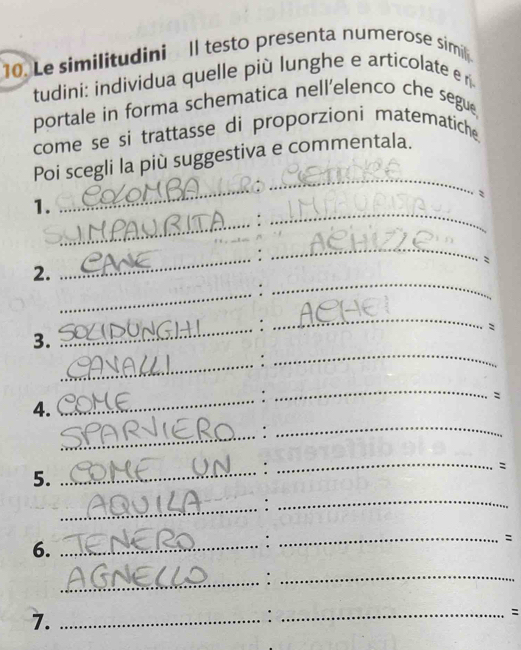 10. Le similitudini Il testo presenta numerose simili-
tudini: individua quelle più lunghe e articolate e ri-
portale in forma schematica nell'elenco che segue,
come se si trattasse di proporzioni matematiche.
Poi scegli la più suggestiva e commentala.
1. COLOMBA : =
SIMPAURITA :
2. CANE : ACHILLE =
:
3. SOLIDUNGHI : ACHEI =
CAVALLI :
4. COME : =
SPARVIERO :
5. COME UN : =
AQUILA :
6. TENERO : =
AGNELLO :
7. : =